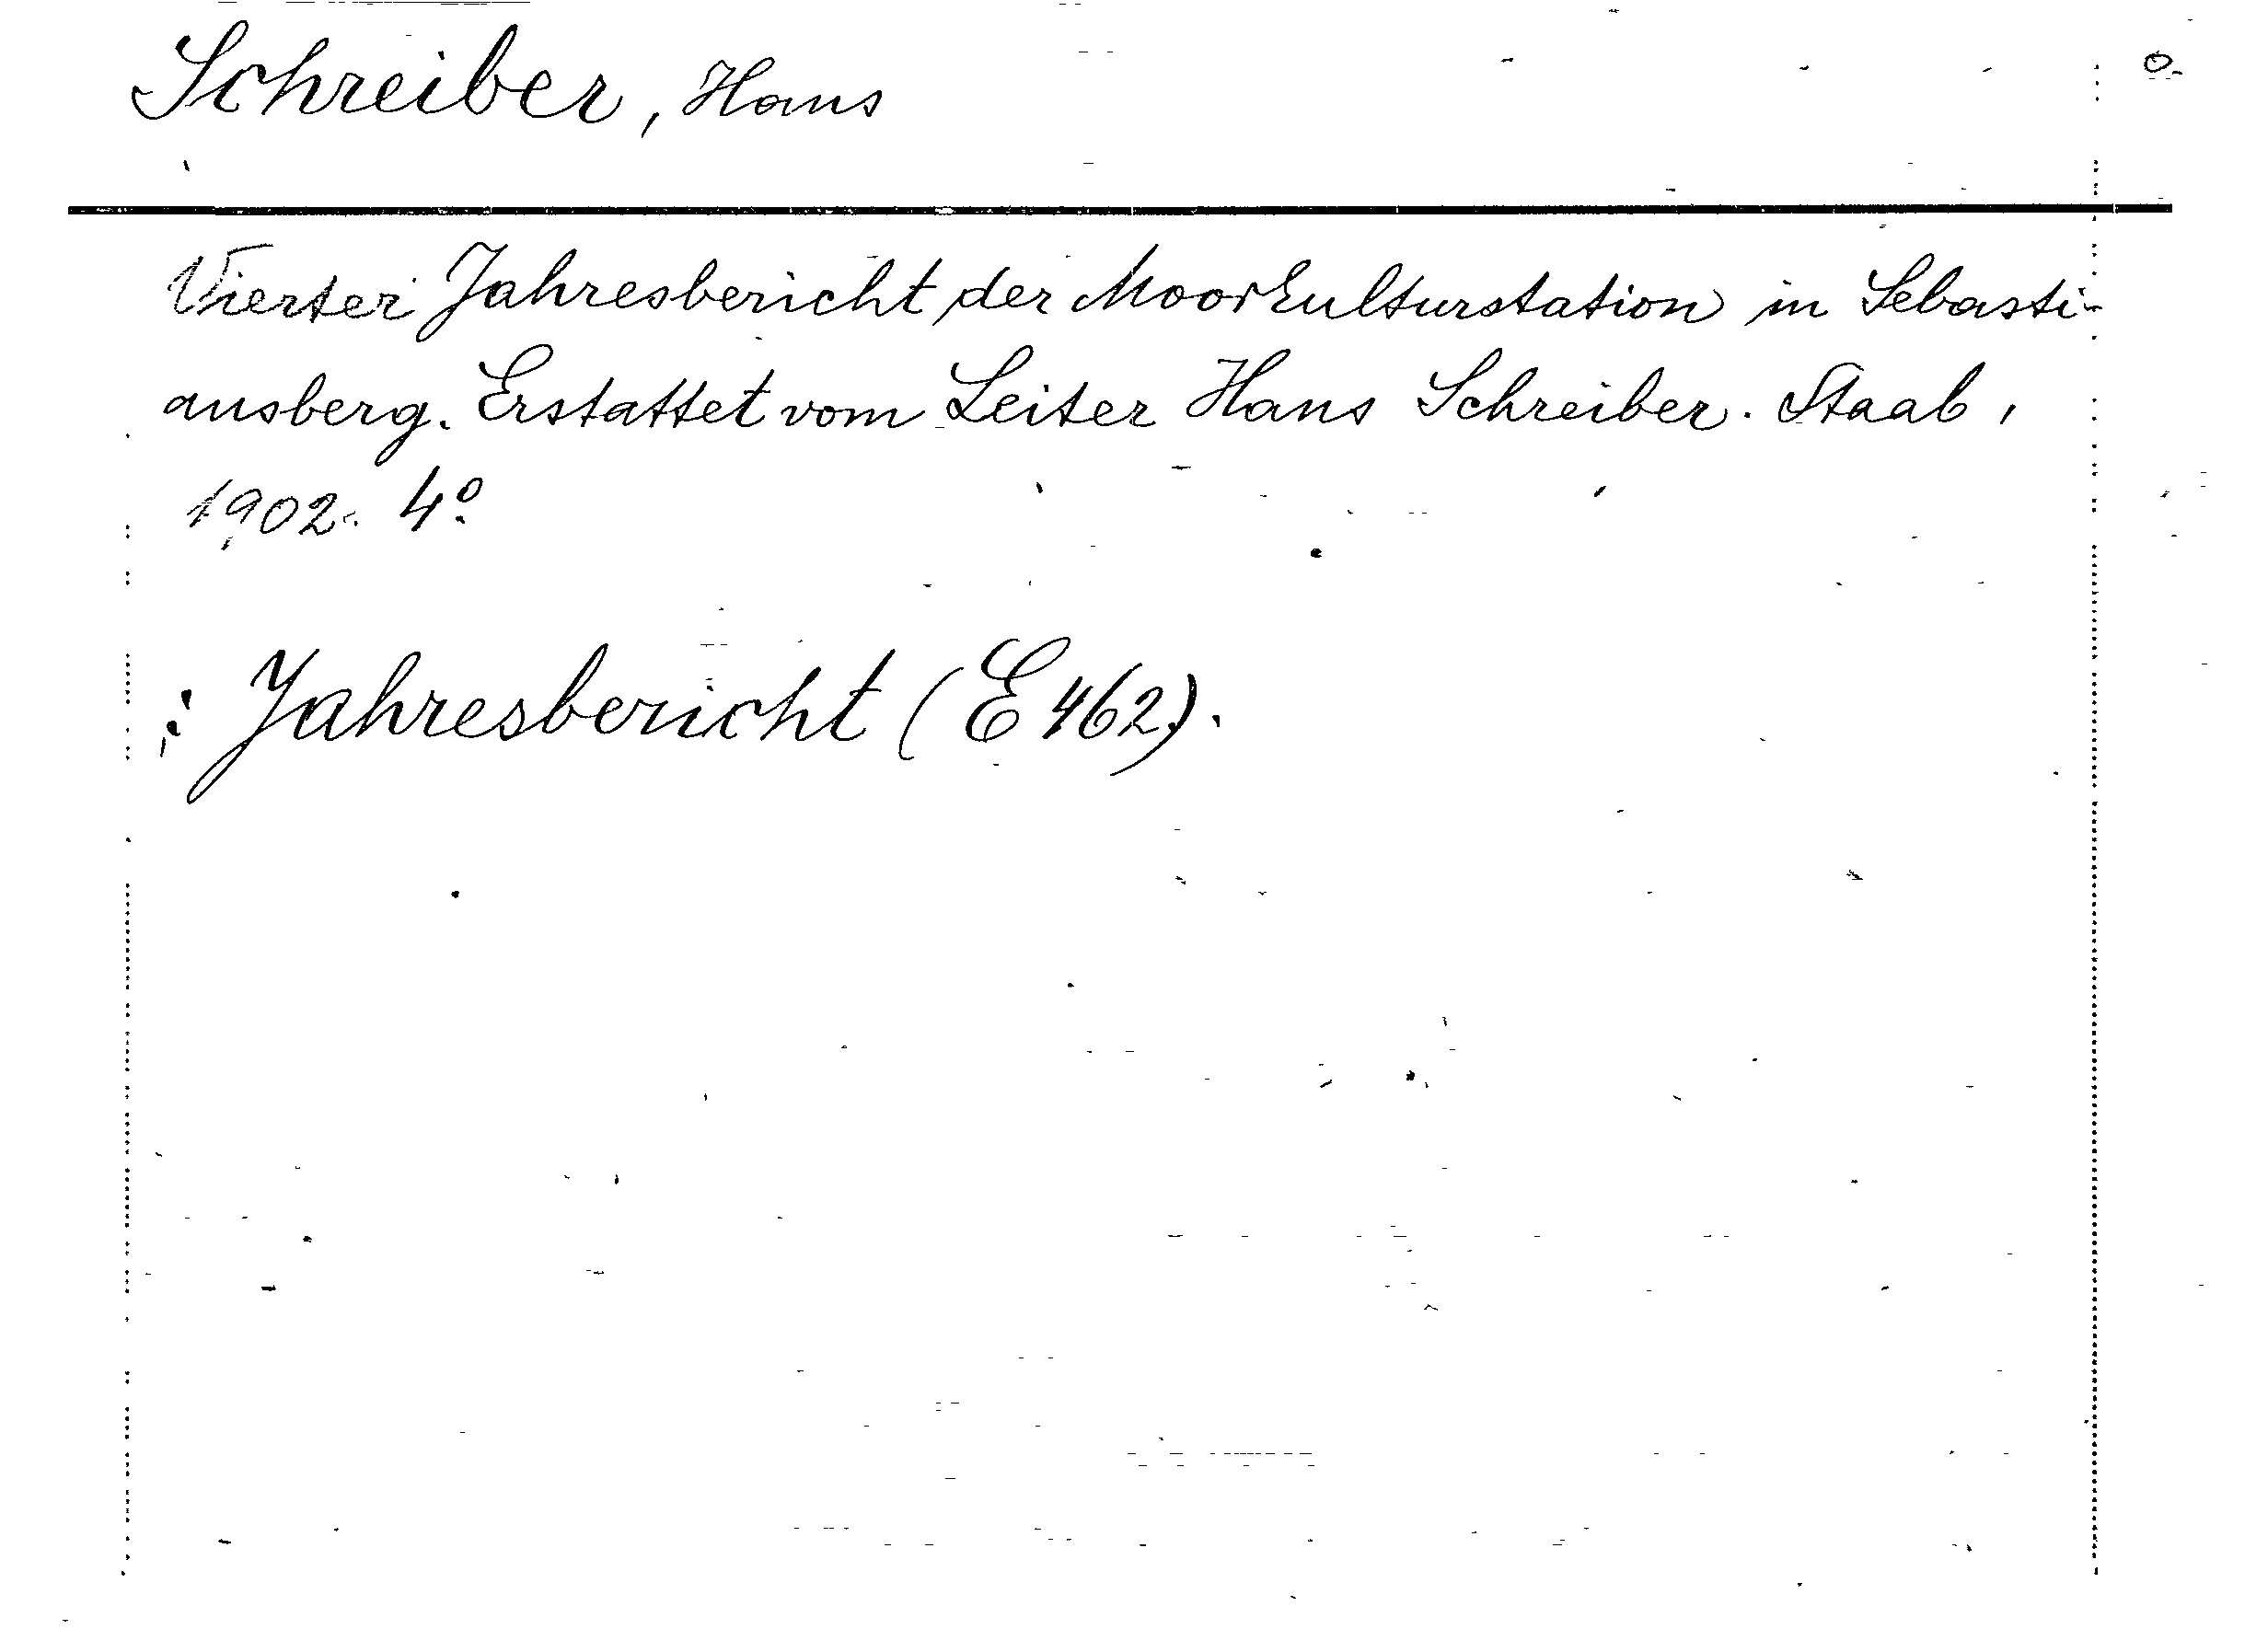 Schreiber, Hans
Vierter Jahresbericht der Moorkulturstation in Sebasti-
ansberg. Erstattet vom Leiter Hans Schreiber. Staab,
1902. 4º
: Jahresbericht (E 462).